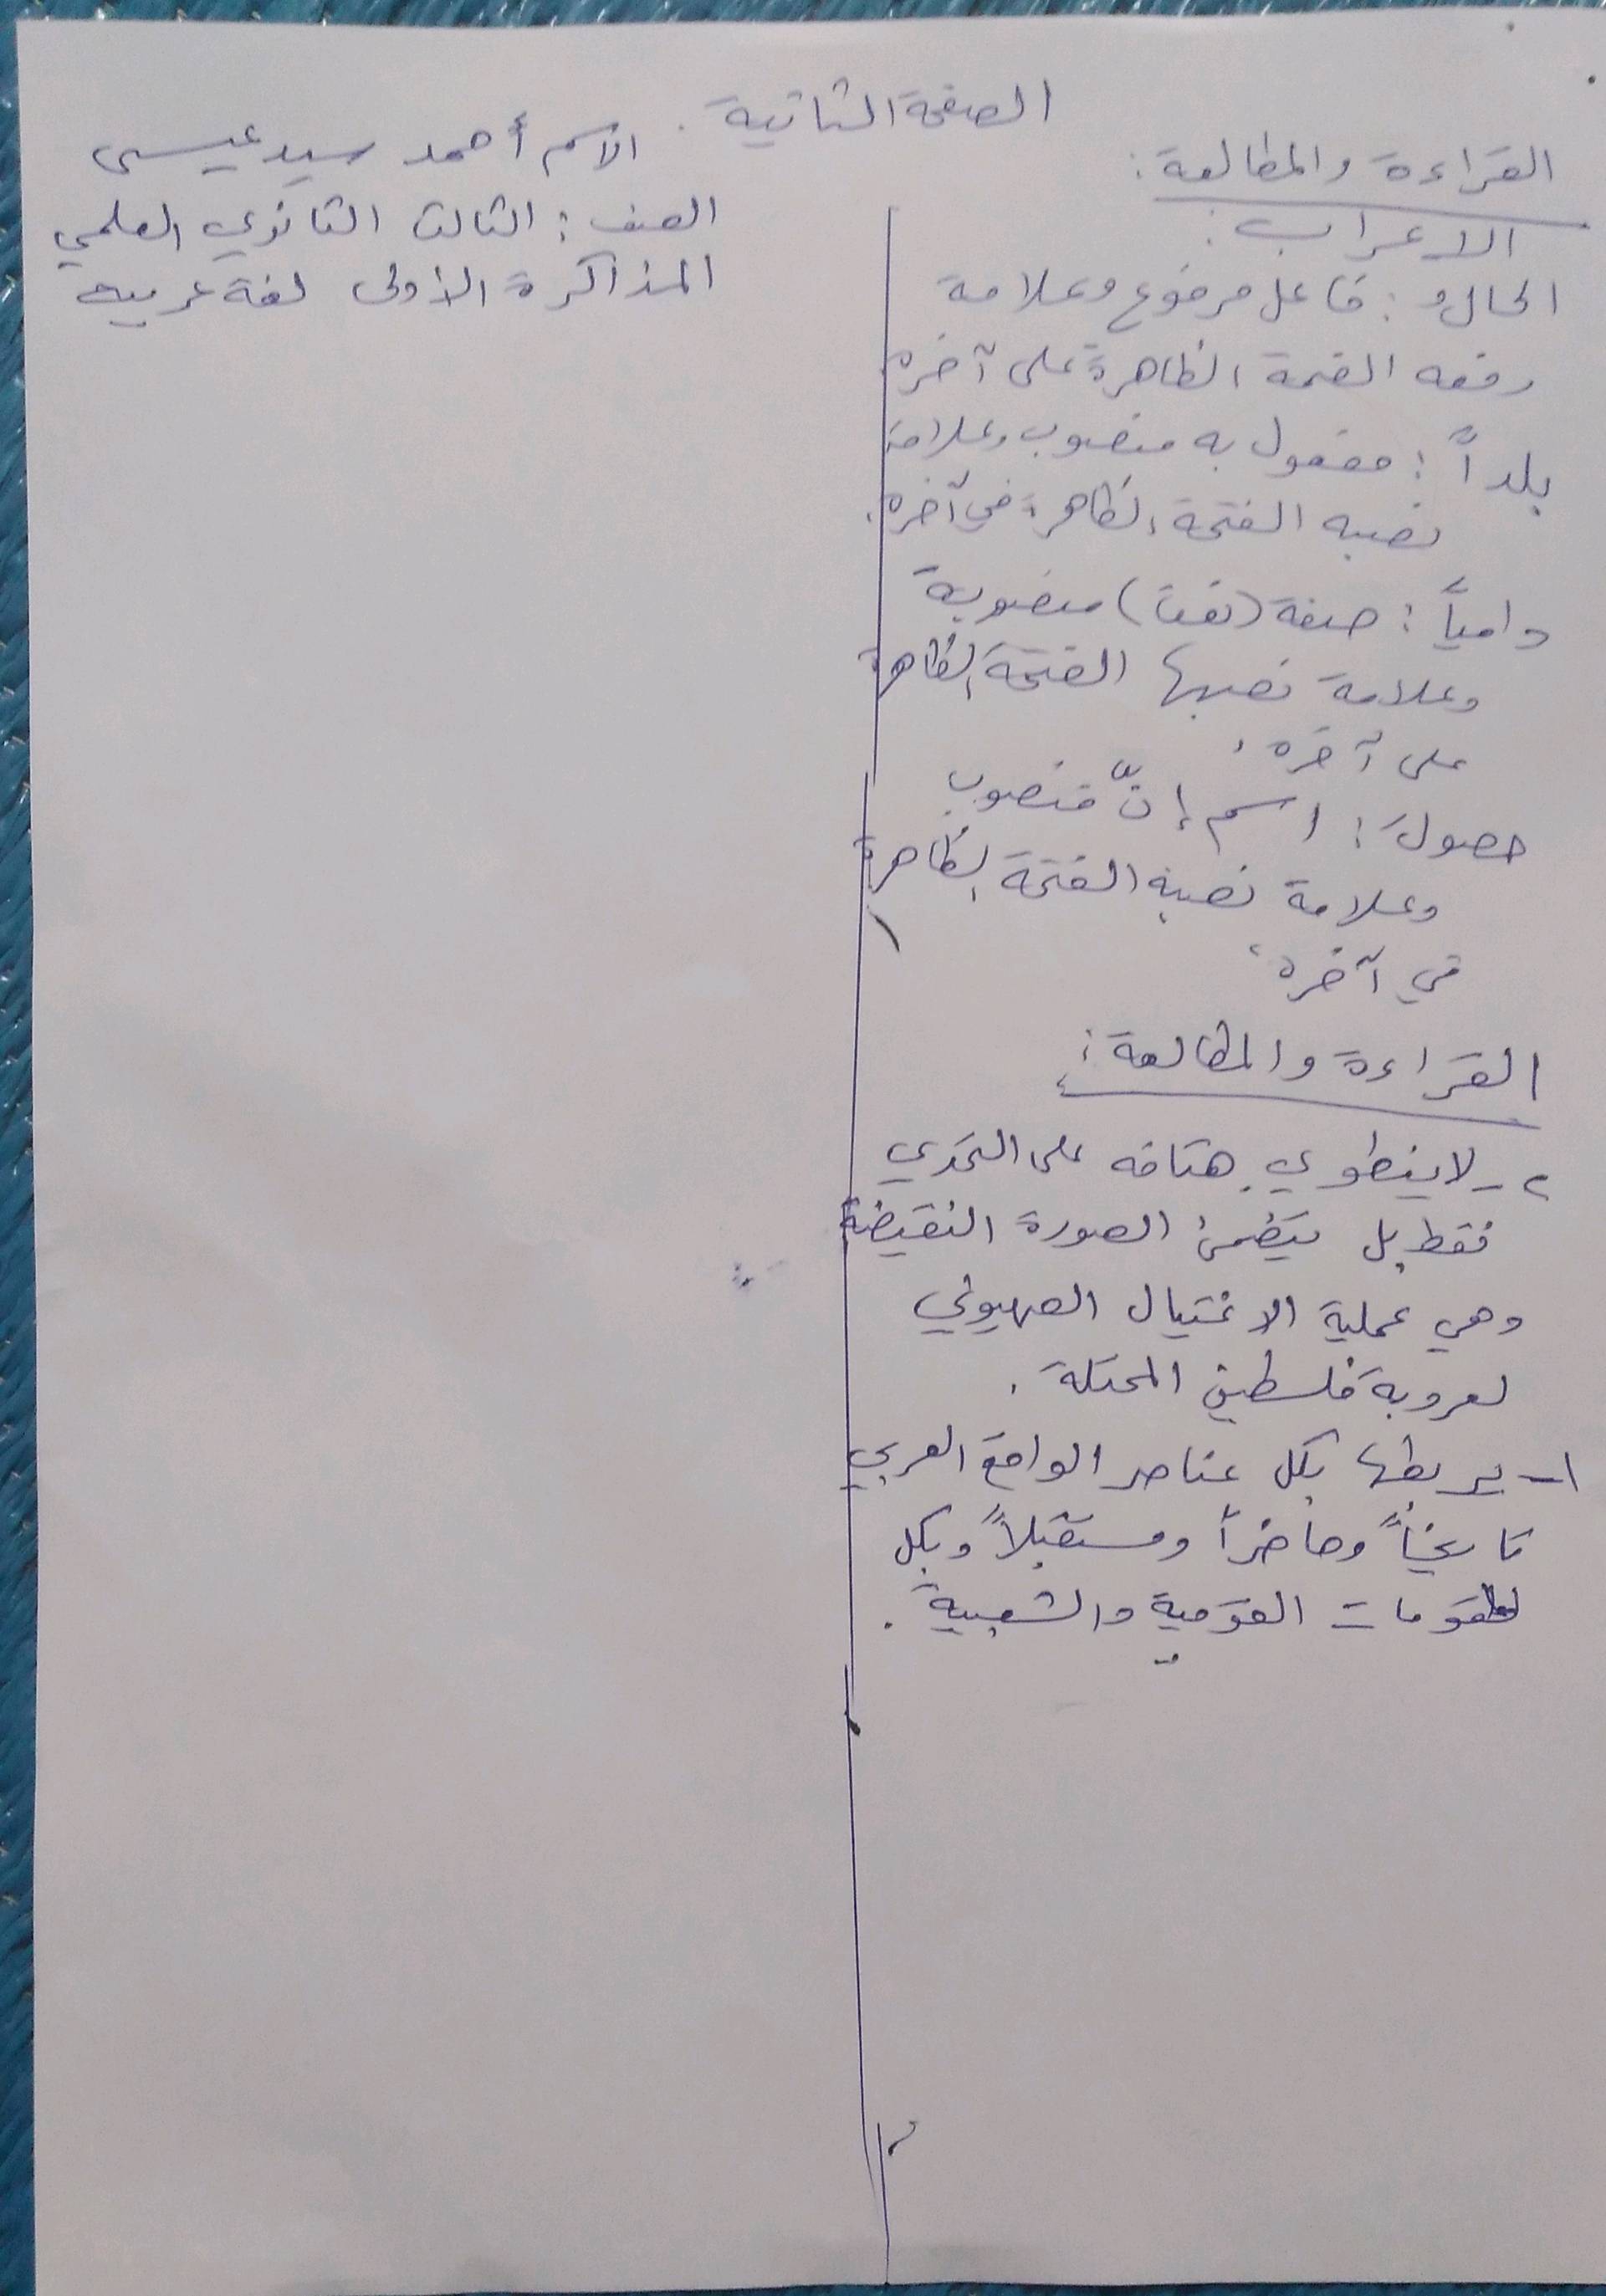 الصفحة الثانية.
الاسم أحمد سيد عيسى
الصف: الثالث الثانوي العلمي
المذاكرة الأولى لغة عربية
القراءة والمطالعة:
الاعراب:
الحالُ: فاعل مرفوع وعلامة
رفعه الضمة الظاهرة على آخره
بلداً: مفعول به منصوب وعلامة
نصبه الفتحة الظاهرة في آخره.
دامياً: صفة (نعت) منصوبة
وعلامة نصبها الفتحة الظاهرة
على آخره.
حصولَ: اسم إنّ منصوب
وعلامة نصبه الفتحة الظاهرة
في آخره.
القراءة والمطالعة:
٢- لا ينطوي هتافه على التحدي
فقط بل يتضمن الصورة النقيضة
وهي عملية الاغتيال الصهيوني
لعروبة فلسطين المحتلة.
١- يربطها بكل عناصر الواقع العربي
تاريخاً وحاضراً ومستقبلاً وبكل
المقومات القومية والشعبية.